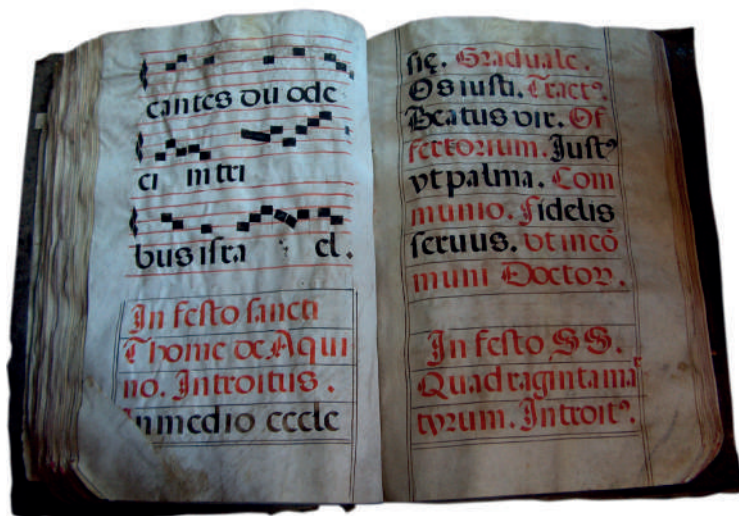 cantes duode
ci in tri
bus isra el.
In festo sancti
Thome de Aqui
no. Introitus.
In medio eccle
sie. Graduale.
Os iusti. Tractꝰ.
Beatus vir. Of
fertorium. Justꝰ
vt palma. Com
munio. Fidelis
seruus. vt in cō
muni Doctoꝝ.
In festo SS.
Quadraginta ma
tyrum. Introitꝰ.